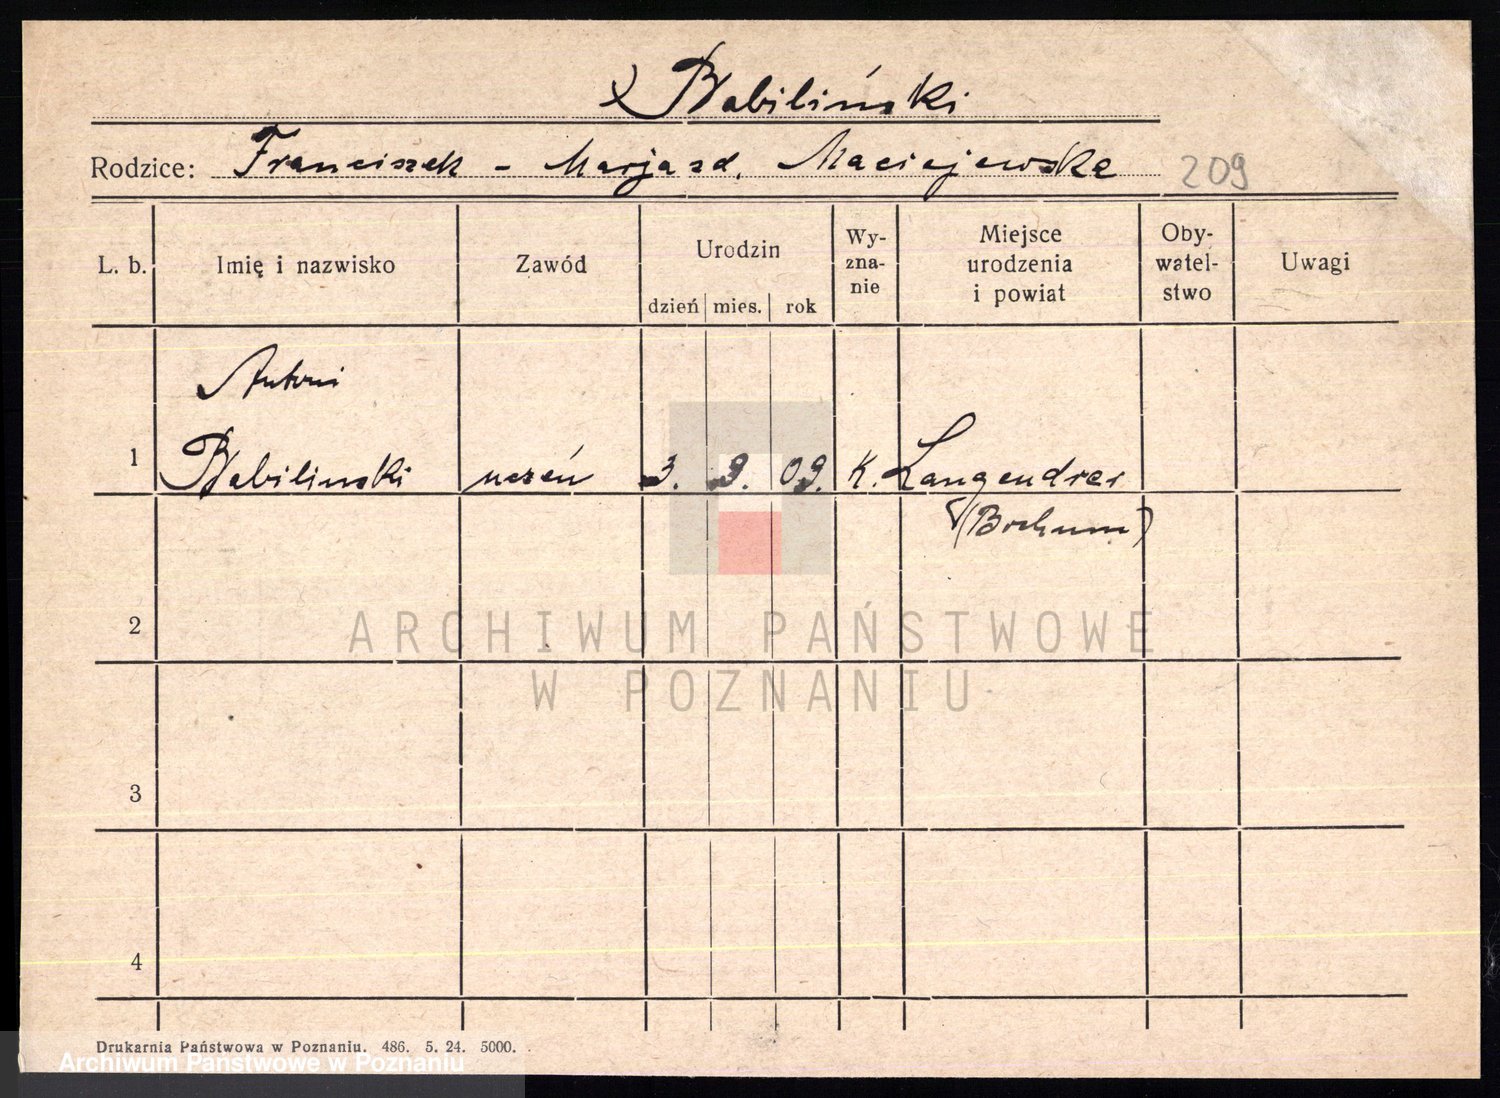 Babiliński
Rodzice: Franciszek - Marja zd. Maciejewska 209
L. b. Imię i nazwisko Zawód Urodzin dzień mies. rok Wy-zna-nie Miejsce urodzenia i powiat Oby-watel-stwo Uwagi
Antoni
1 Babilinski uczeń 3. 9. 09. K. Langendreer
(Bochum)
2
ARCHIWUM PAŃSTWOWE
W POZNANIU
3
4
Drukarnia Państwowa w Poznaniu. 486. 5. 24. 5000.
Archiwum Państwowe w Poznaniu